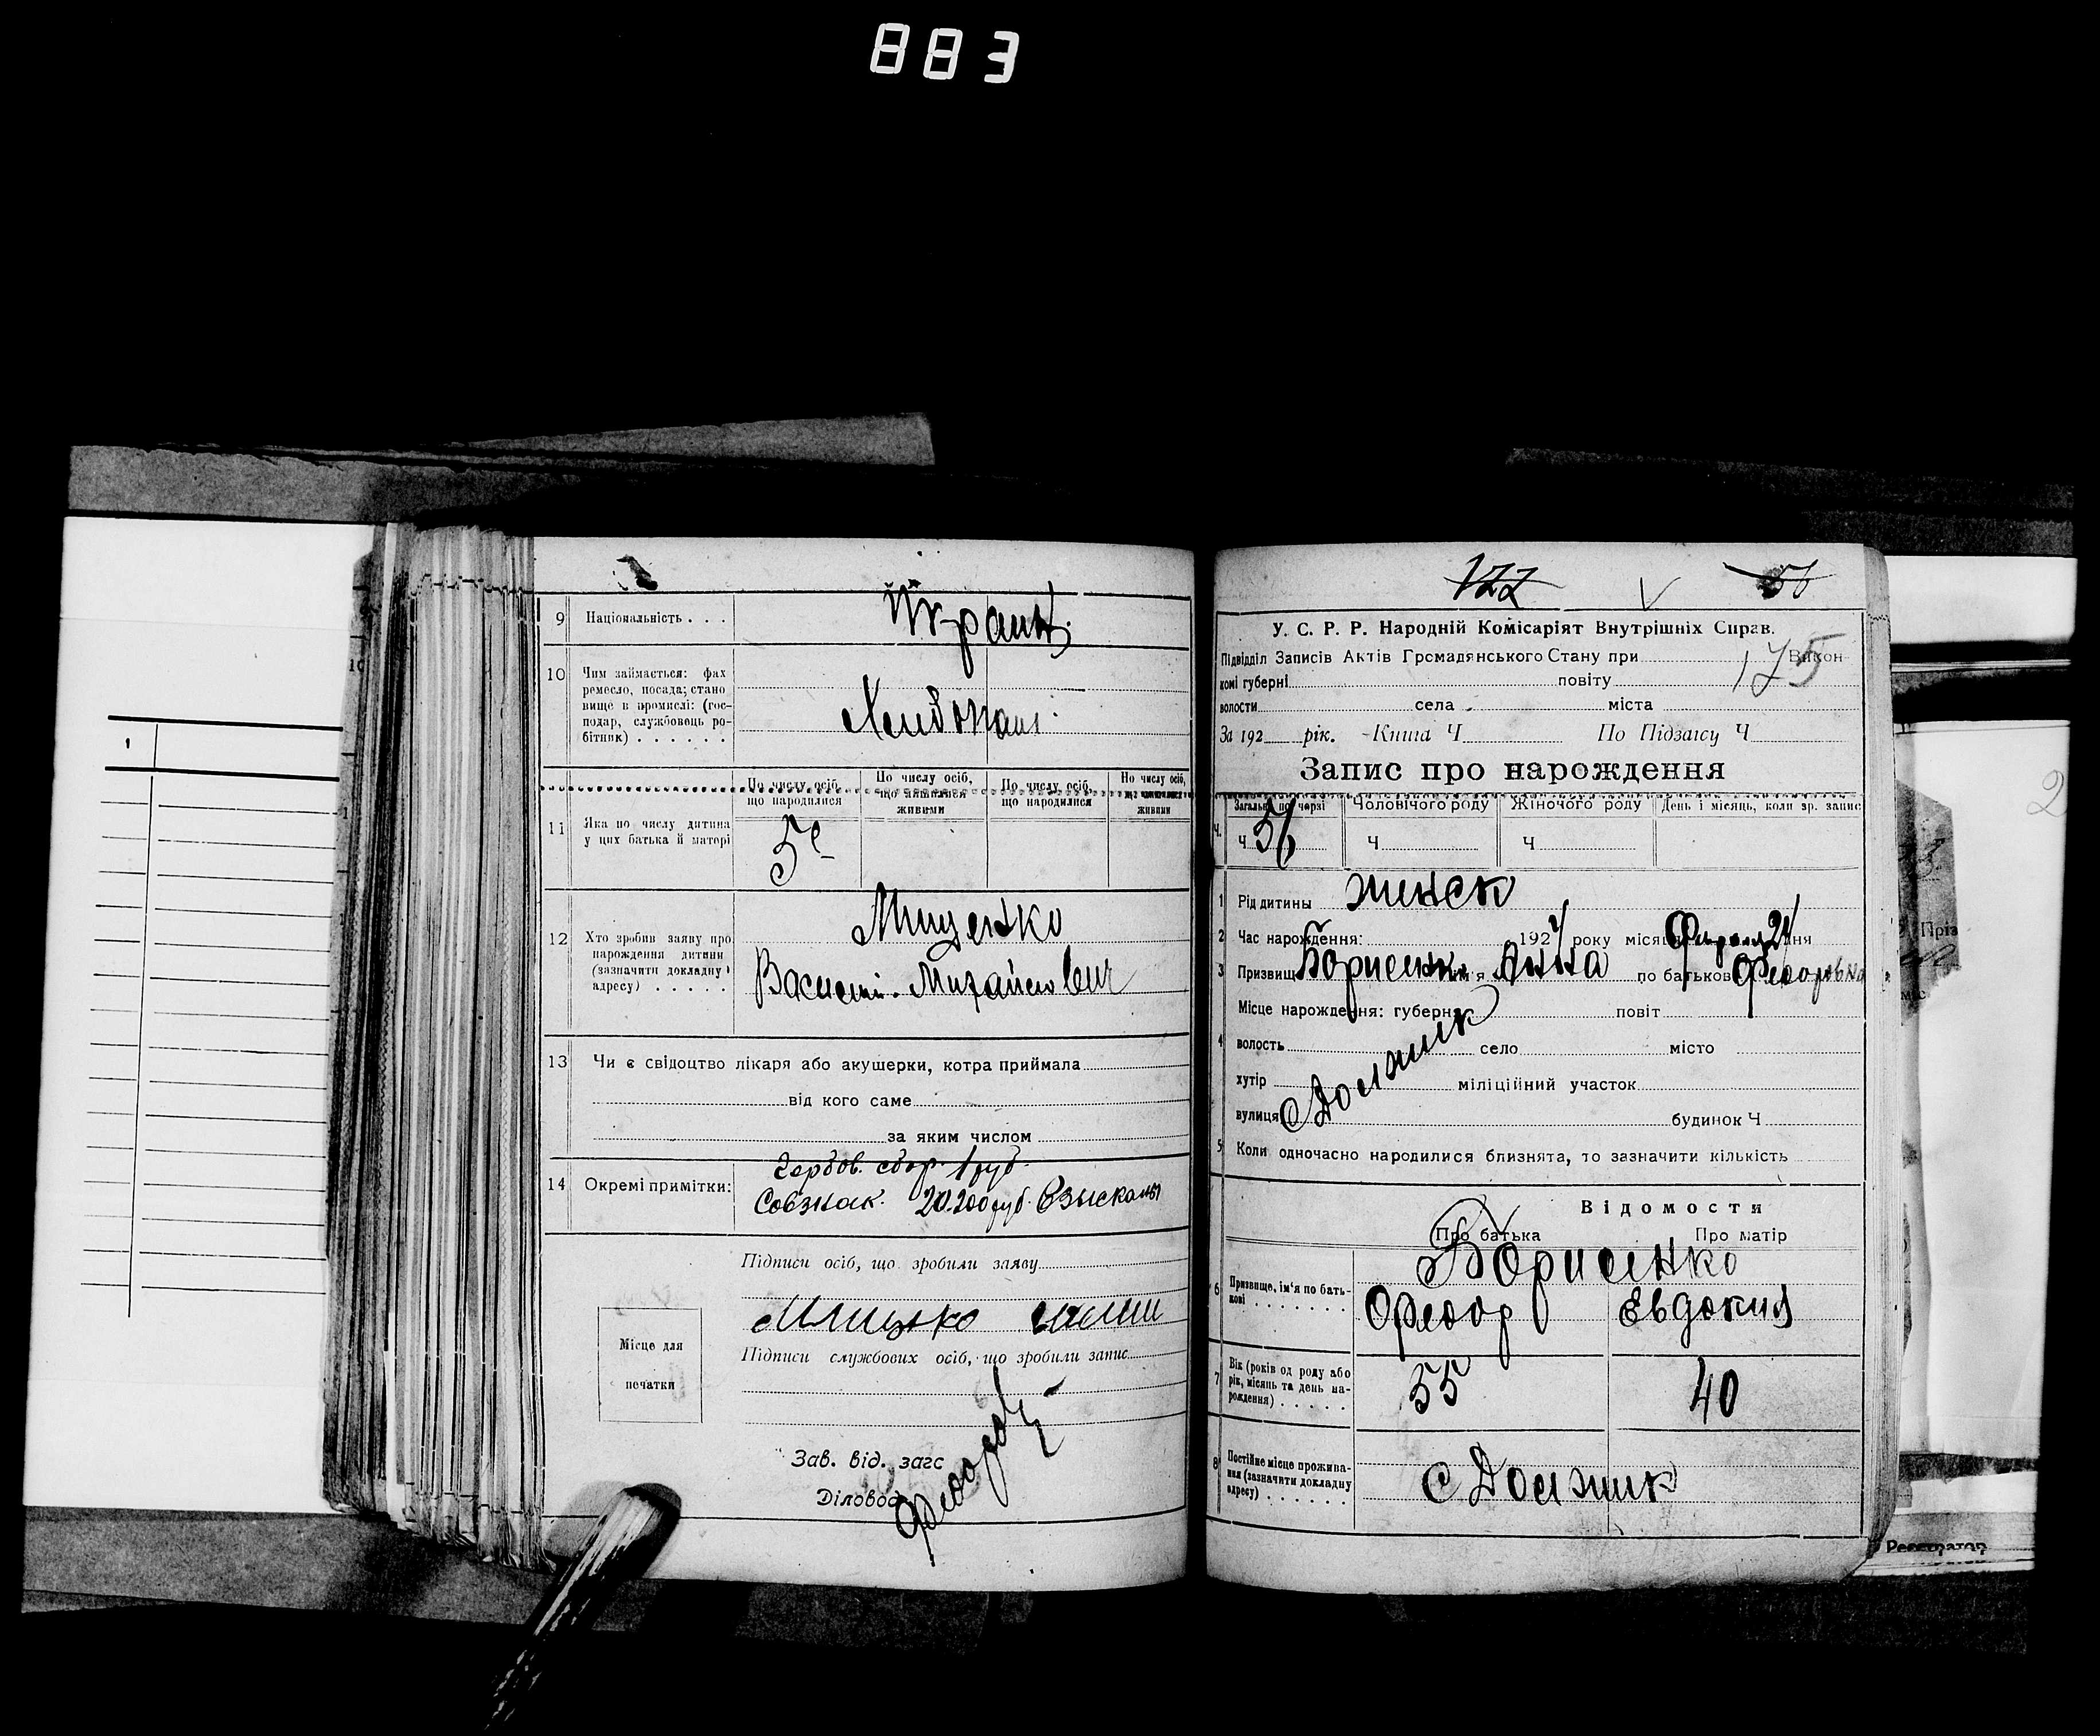 883
9 Національність . . .
Украин.
10 Чим займається: фах
ремесло, посада; стано
вище в промислі: (гос-
подар, службовець ро-
бітник) . . . . . .
Хлебопаш.
По числу осіб, що народилися
По числу осіб, що лишилися живими
По числу осіб, що народилися
По числу осіб, що лишилися живими
11 Яка по числу дитина
у цих батька й матері
5е
12 Хто зробив заяву про
нарождення дитини
(зазначити докладну
адресу) . . . . .
Мищенко
Василий Михайлович
13 Чи є свідоцтво лікаря або акушерки, котра приймала
від кого саме
за яким числом
14 Окремі примітки:
Гербов. сбор 1 руб.
Совзнак. 20.200 руб. взысканы
Підписи осіб, що зробили заяву
Підписи службових осіб, що зробили запис
Місце для
печатки
Зав. від. загс
Діловод
122 56
У. С. Р. Р. Народній Комісаріят Внутрішніх Справ.
Підвідділ Записів Актів Громадянського Стану при Викон-
175
комі губерні повіту
волости села міста
За 192 рік. Книга Ч По Підзагсу Ч
Запис про нарождення
Загальн. по черзі Чоловічого роду Жіночого роду День і місяць, коли зр. запис
Ч. Ч 56 Ч Ч
1 Рід дитины женск
2 Час нарождення: 192 року місяця дня
3 Призвище Борисенко ім'я Анна по батькові Феодоровна
Місце нарождення: губерня повіт
4 волость село місто
хутір міліційний участок
вулиця будинок Ч
с Должик
5 Коли одночасно народилися близнята, то зазначити кількість
Відомости
Про батька Про матір
6 Призвище, ім'я по бать-
кові . . . . . . .
Борисенко
Феодор Евдокия
7 Вік (років од роду або
рік, місяць та день на-
рождення) . . . . .
55 40
8 Постійне місце прожива-
ння (зазначити докладну
адресу) . . . . . .
с Должик
Реєстратор